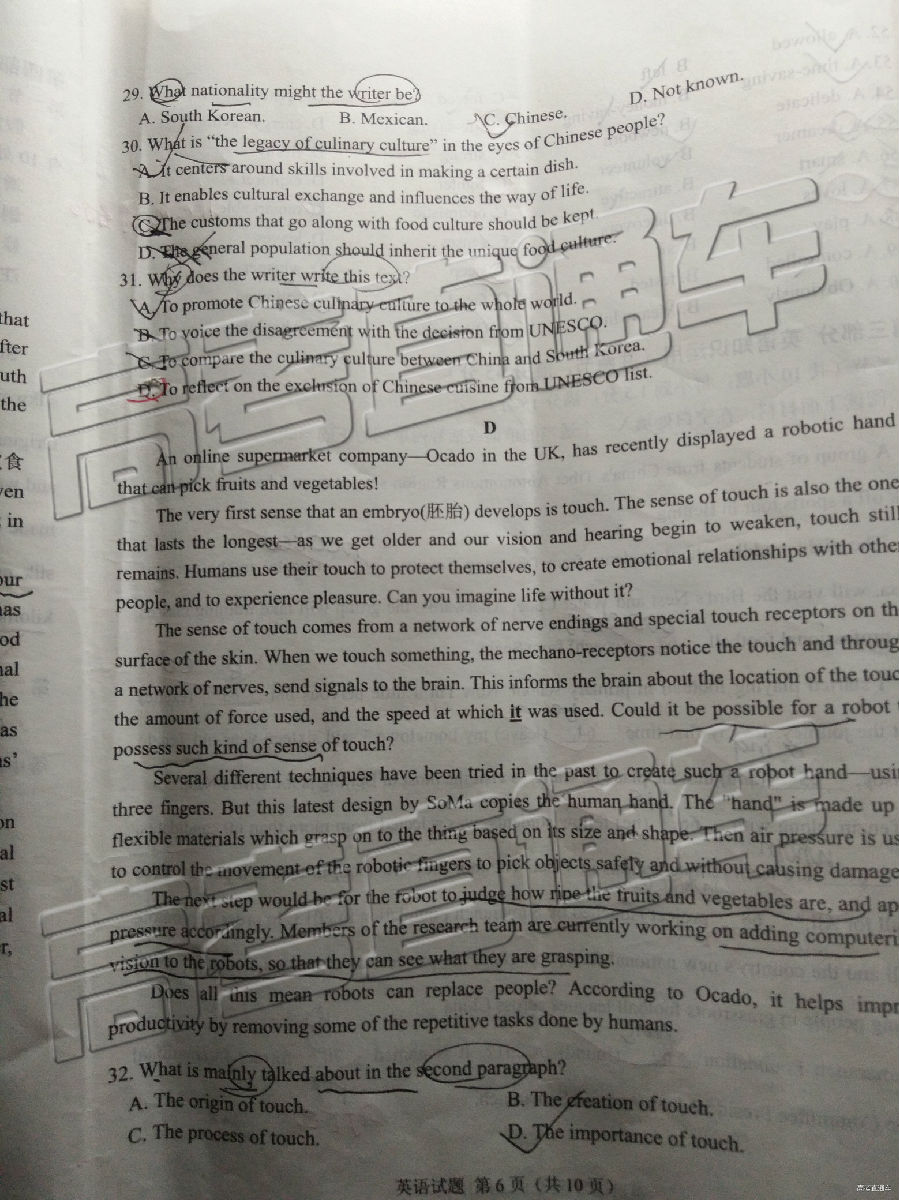 29. What nationality might the writer be?
A. South Korean. B. Mexican. C. Chinese. D. Not known.
30. What is "the legacy of culinary culture" in the eyes of Chinese people?
A. It centers around skills involved in making a certain dish.
B. It enables cultural exchange and influences the way of life.
C. The customs that go along with food culture should be kept.
D. The general population should inherit the unique food culture.
31. Why does the writer write this text?
A. To promote Chinese culinary culture to the whole world.
B. To voice the disagreement with the decision from UNESCO.
C. To compare the culinary culture between China and South Korea.
D. To reflect on the exclusion of Chinese cuisine from UNESCO list.
D
An online supermarket company—Ocado in the UK, has recently displayed a robotic hand
that can pick fruits and vegetables!
The very first sense that an embryo(胚胎) develops is touch. The sense of touch is also the one
that lasts the longest—as we get older and our vision and hearing begin to weaken, touch still
remains. Humans use their touch to protect themselves, to create emotional relationships with othe
people, and to experience pleasure. Can you imagine life without it?
The sense of touch comes from a network of nerve endings and special touch receptors on th
surface of the skin. When we touch something, the mechano-receptors notice the touch and throug
a network of nerves, send signals to the brain. This informs the brain about the location of the touc
the amount of force used, and the speed at which it was used. Could it be possible for a robot
possess such kind of sense of touch?
Several different techniques have been tried in the past to create such a robot hand—usi
three fingers. But this latest design by SoMa copies the human hand. The "hand" is made up
flexible materials which grasp on to the thing based on its size and shape. Then air pressure is us
to control the movement of the robotic fingers to pick objects safely and without causing damage
The next step would be for the robot to judge how ripe the fruits and vegetables are, and ap
pressure accordingly. Members of the research team are currently working on adding computeri
vision to the robots, so that they can see what they are grasping.
Does all this mean robots can replace people? According to Ocado, it helps impr
productivity by removing some of the repetitive tasks done by humans.
32. What is mainly talked about in the second paragraph?
A. The origin of touch. B. The creation of touch.
C. The process of touch. D. The importance of touch.
英语试题 第 6 页（共 10 页）
that
fter
uth
the
食
ven
in
our
has
od
nal
he
as
as'
on
al
st
al
r,
高考直通车
高考直通车
高考直通车